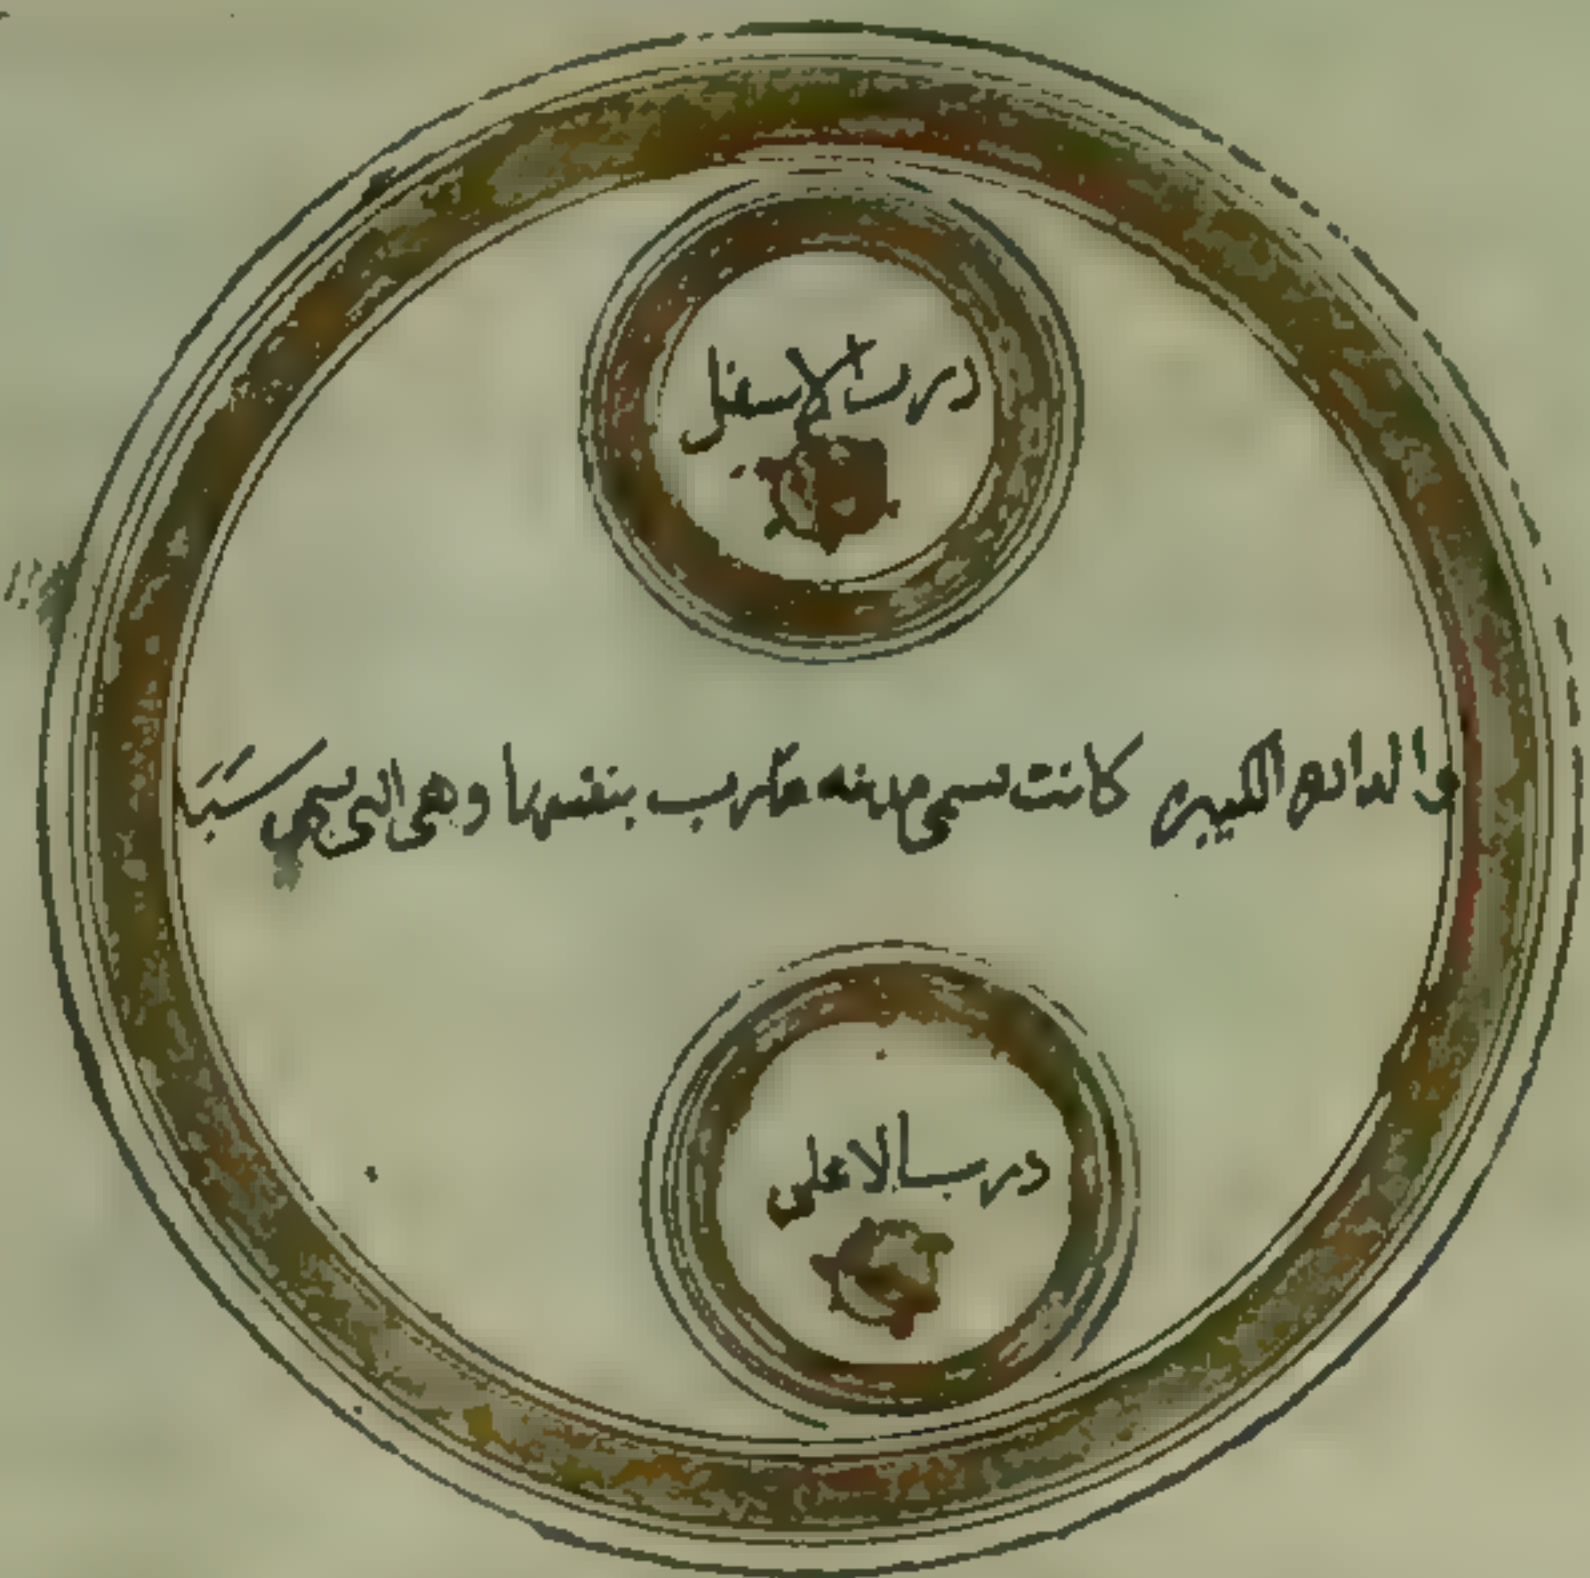 درب الاسفل
والدائرة الكبيرة كانت تسمى مدينة مأرب بنفسها وهى التى تسمى سبا
درب الاعلى